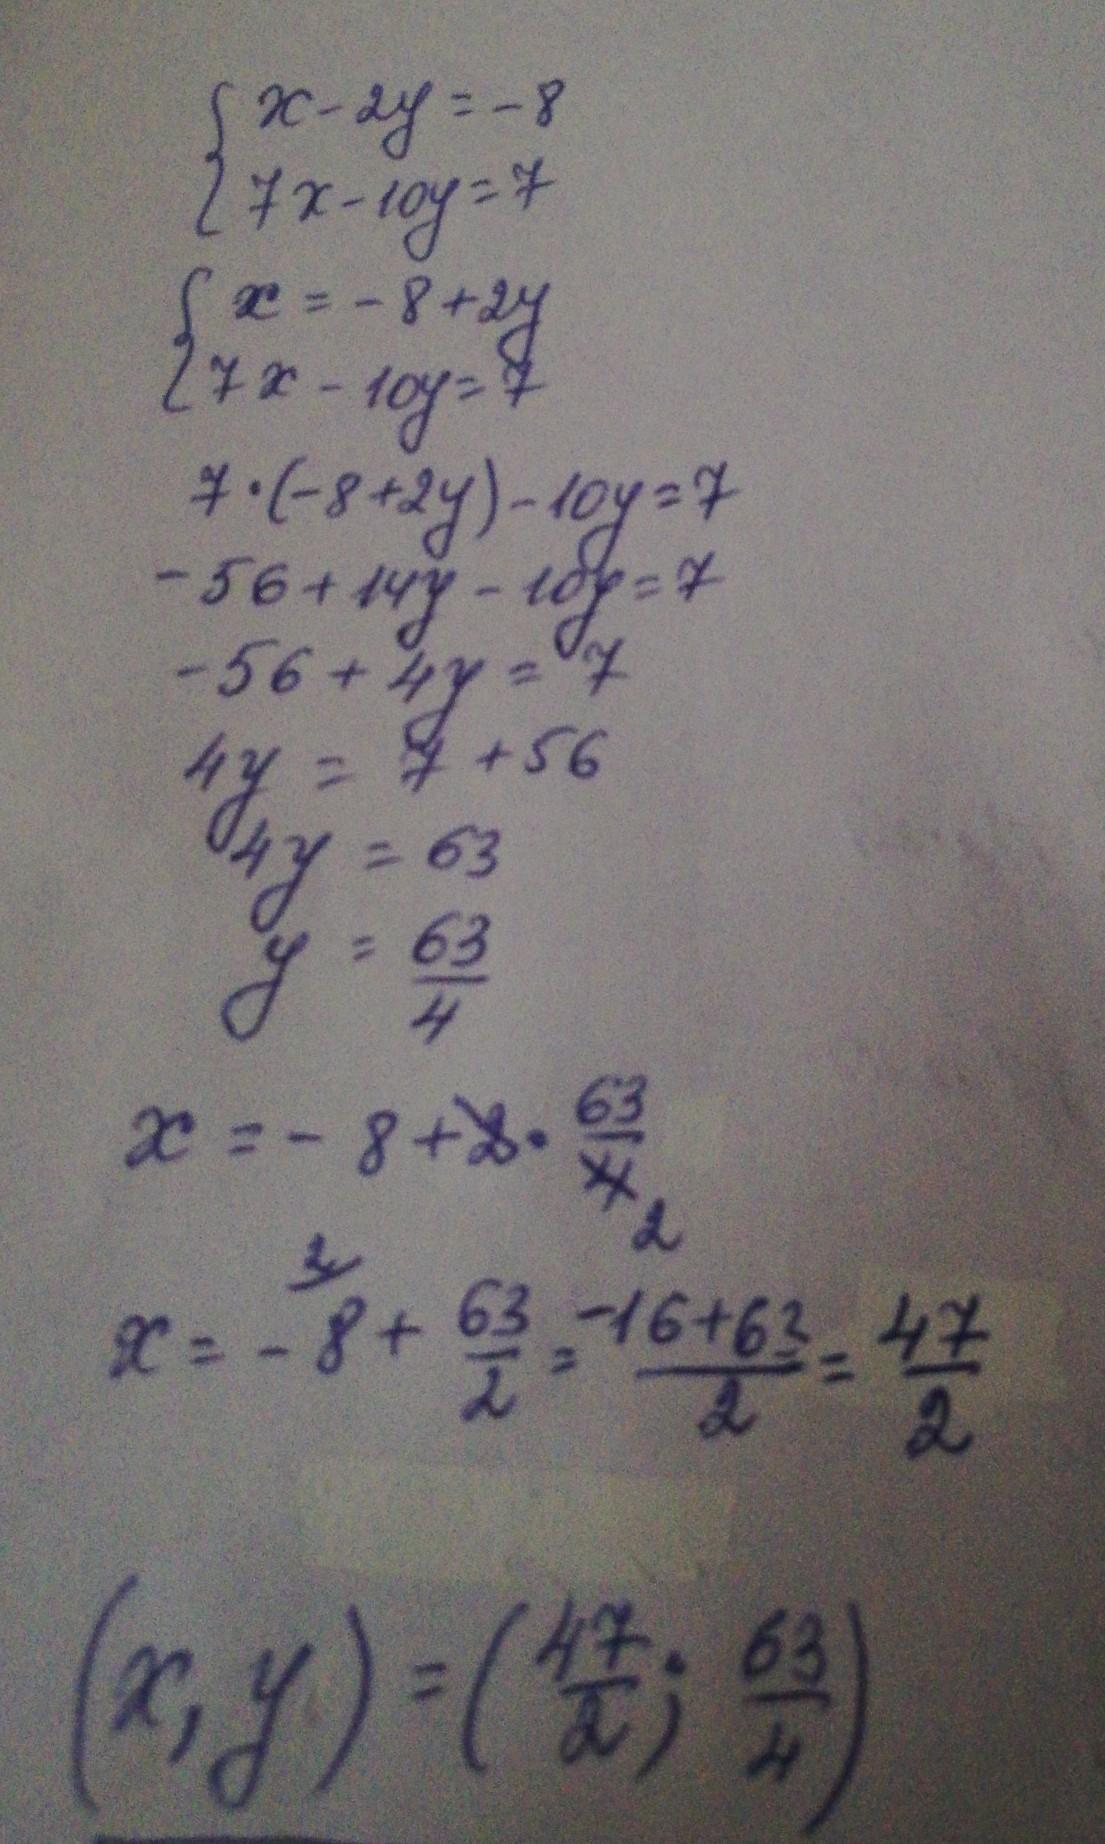 { x - 2y = -8
7x - 10y = 7
{ x = -8 + 2y
7x - 10y = 7
7·(-8+2y) - 10y = 7
-56 + 14y - 10y = 7
-56 + 4y = 7
4y = 7 + 56
4y = 63
y = 63/4
x = -8 + 2 · 63/4 2
x = - 2/8 + 63/2 = -16+63/2 = 47/2
(x, y) = (47/2; 63/4)